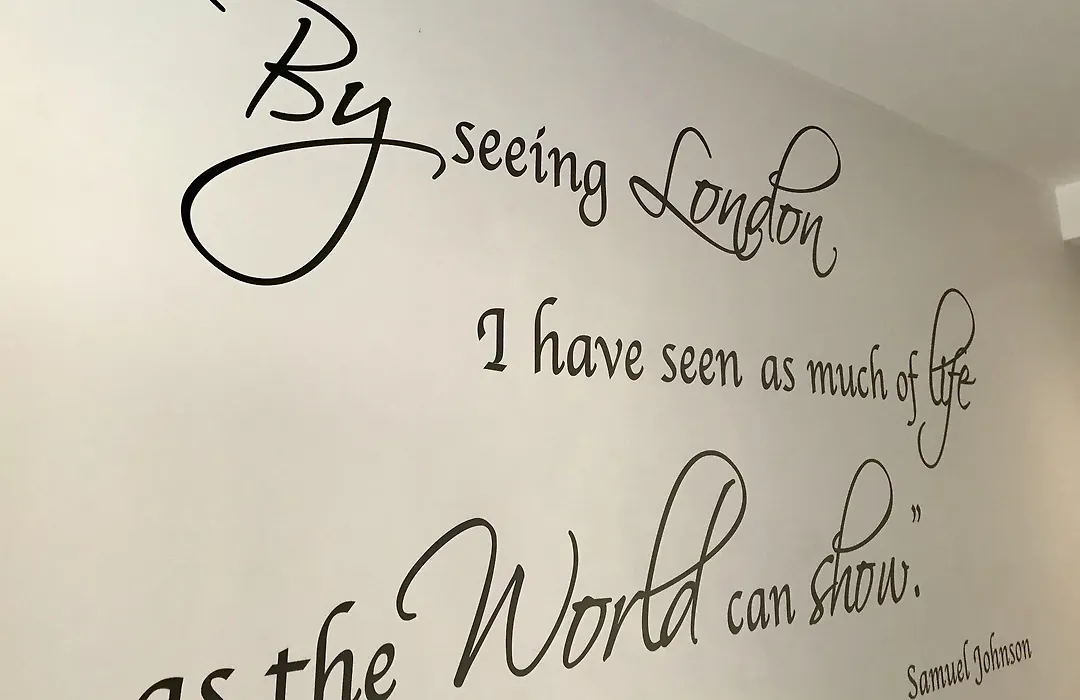 By seeing London
I have seen as much of life
as the World can show.”
Samuel Johnson